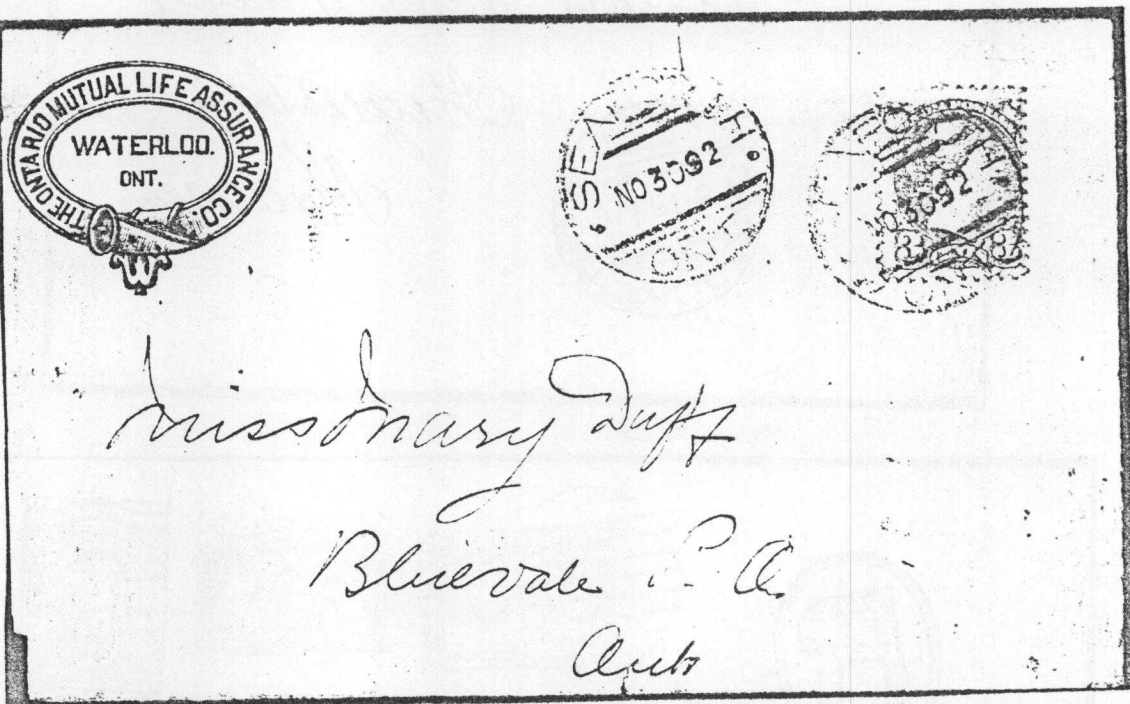 THE ONTARIO MUTUAL LIFE ASSURANCE CO.
WATERLOO.
ONT.
NO 30 92
ONT
NO 30 92
3 3
Miss Mary Duff
Bluevale P.O.
Ont